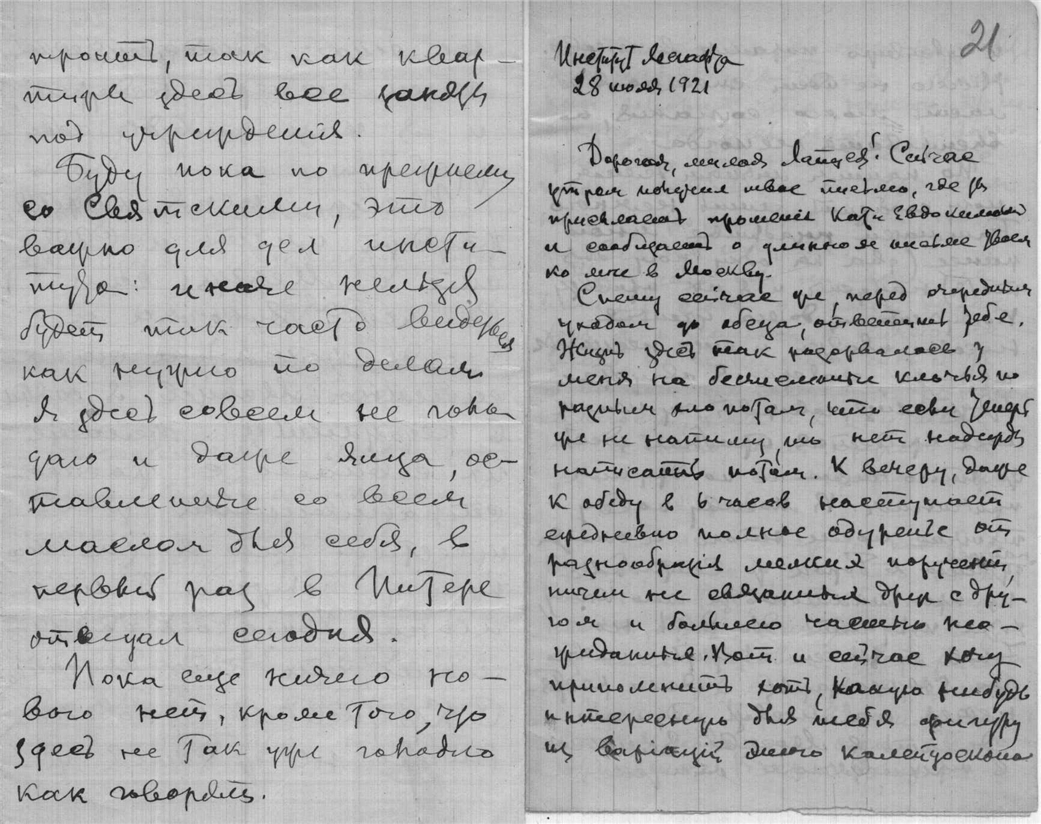 тронет, так как квар-
тиры здесь все заняты
под учреждения.
Буду пока по прежнему
со Святскими, это
важно для дел инсти-
тута: иначе нельзя
будет так часто видеться
как нужно по делам
Я здесь совсем не голо-
даю и даже яйца, ос-
тавленные со всем
маслом для себя, в
первый раз в Питере
отведал сегодня.
Пока еще ничего но-
вого нет, кроме того, что
здесь не так уж голодно
как говорят.
21
Институт Лесгафта
28 июля 1921
Дорогая, милая Сейчас
утром получил твое письмо, где ты
присылаешь Кати Евдокимовой
и сообщаешь о длинном письме твоем
ко мне в Москву.
Спешу сейчас же, перед очередным
уходом до обеда, ответить тебе.
Жизнь здесь так разорвалась у
меня на бесчисленные клочья по
разным хлопотам, что если теперь
же не напишу, то нет надежды
написать потом. К вечеру, даже
к обеду в 6 часов наступает
ежедневно полное одуренье от
разнообразия мелких поручений,
ничем не связанных друг с дру-
гом и большею частью нео-
жиданных. Вот и сейчас хочу
припомнить хоть какую нибудь
интересную для тебя фигуру
из вариаций этого калейдоскопа